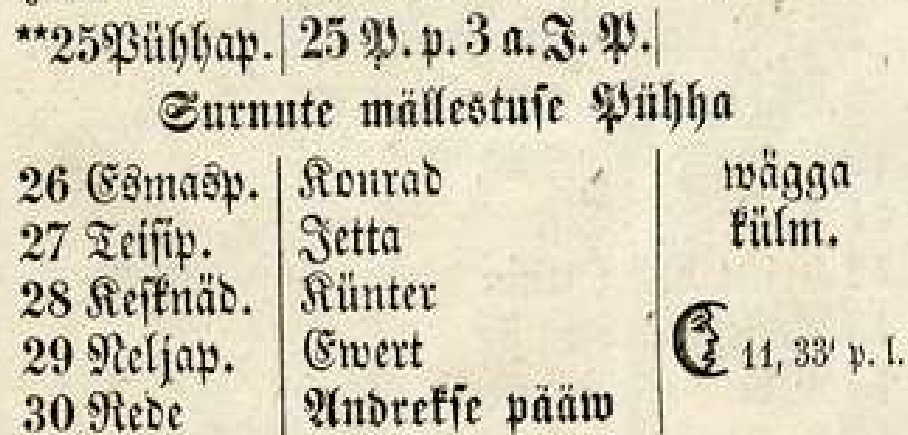 **25 Pühhap. 25 P. p. 3 a. J. P.
Surnute mällestuse Pühha
26 Esmasp. Konrad wägga
27 Teisip. Jetta külm.
28 Kesknäd. Künter
29 Neljap. Ewert 11, 33' p. l.
30 Rede Andrekse pääw